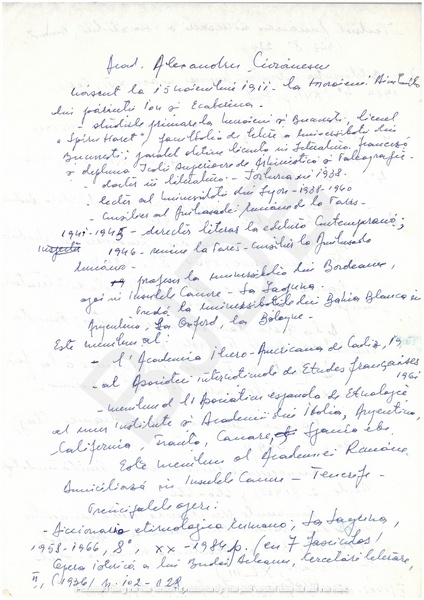 Acad. Alexandru Ciorănescu
născut la 15 noiembrie 1911 - la Moroieni Dîmbovița
din părinții Ion și Ecaterina -
- studiile primare la Moroieni și București, liceul
"Spiru Haret", facultatea de litere a Universității din
București; paralel obține licența în literatura franceză
și diploma Școlii Superioare de Arhivistică și Paleografie -
doctor în literatură - Sorbona în 1938.
- lector al Universității din Lyon - 1938-1940
- consilier al Ambasadei române la Paris -
1941-1945 - director literar la editura Contemporană;
1946 - revine la Paris - consilier la Ambasada
română -
profesor la universitatea din Bordeaux,
apoi în Insulele Canare - La Laguna.
Predă la universitatea din Bahia Blanca în
Argentina, la Oxford, la Bologne -
Este membru al:
- l'Academia Ibero-Americana de Cadiz, 19
- al Asociației internationale de Etudes françaises
1961
- membru al l'Asociation española de Etnologie
al unor institute și Academii din Italia, Argentina,
California, Franța, Canare, Spania etc.
Este membru al Academiei Române
Domiciliază în Insulele Canare - Tenerife -
Principalele opere:
- Diccionario etimologico rumano, La Laguna,
1958-1966, 8°, XX-1984 p. (en 7 fasciculos)
Opera istorică a lui Budai Deleanu, cercetări literare,
II, (1936) p. 102-128